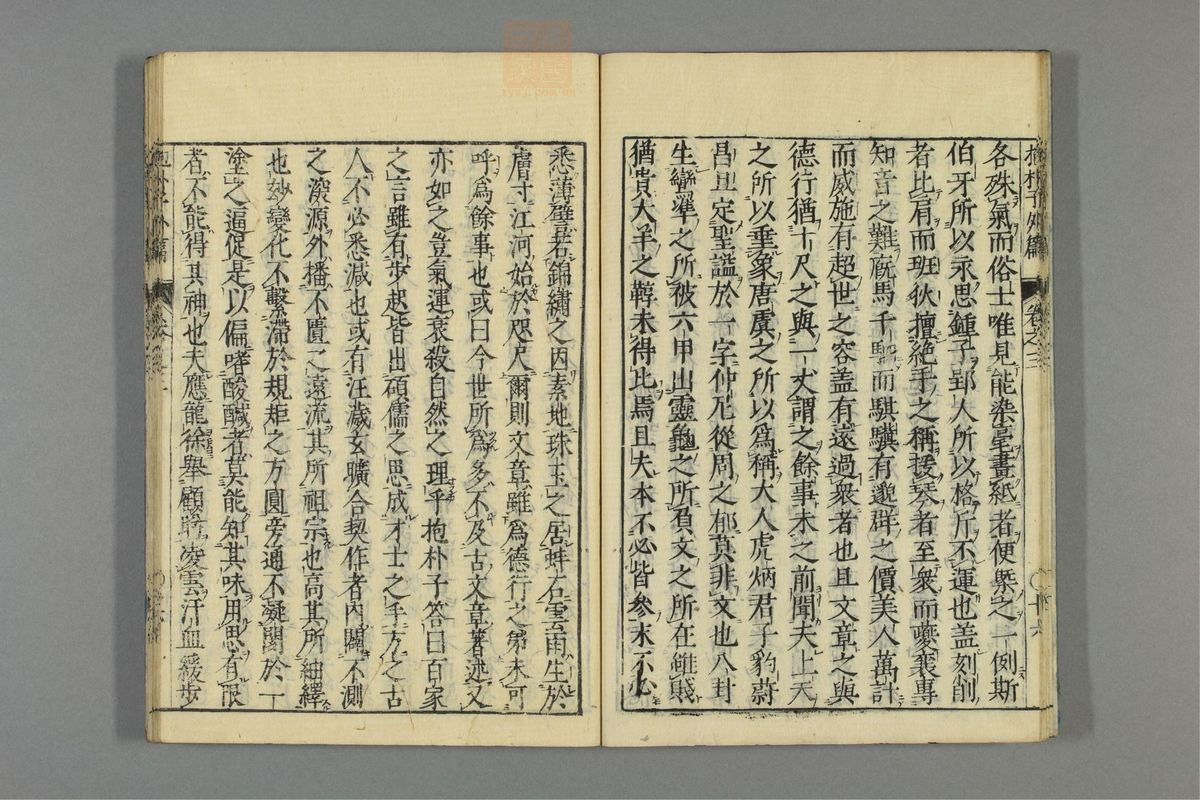 各殊氣而俗士唯見能染毫畫紙者便槩之一例斯
伯牙所以永思鍾子郢人所以格斤不運也盖刻削
者比肩而班狄擅絶手之稱援琴者至衆而夔襄專
知音之難廐馬千駟而騏驥有邈群之價美人萬計
而威施有超世之容盖有遠過衆者也且文章之與
德行猶十尺之與一丈謂之餘事未之前聞夫上天
之所以垂象唐虞之所以爲稱大人虎炳君子豹蔚
昌旦定聖謚於一字仲尼從周之郁莫非文也八卦
生鷹隼之所被六甲出靈龜之所負文之所在雖賤
猶貴犬羊之鞟未得比焉且夫本不必皆參末不必
悉薄璧若錦繡之因素地珠玉之居蚌石雲雨生於
膚寸江河始於咫尺爾則文章雖爲德行之弟未可
呼爲餘事也或曰今世所爲多不及古文章著述又
亦如之豈氣運衰殺自然之理乎抱朴子答曰百家
之言雖有步起皆出碩儒之思成才士之手方之古
人不必悉減也或有汪濊玄曠合契作者內闢不測
之深源外播不匱之遠流其所祖宗也高其所紬繹
也妙變化不繫滯於規矩之方圓旁通不凝閡於一
塗之逼促是以偏嗜酸醎者莫能知其味用思有限
者不能得其神也夫應龍徐舉顧眄凌雲汗血緩步